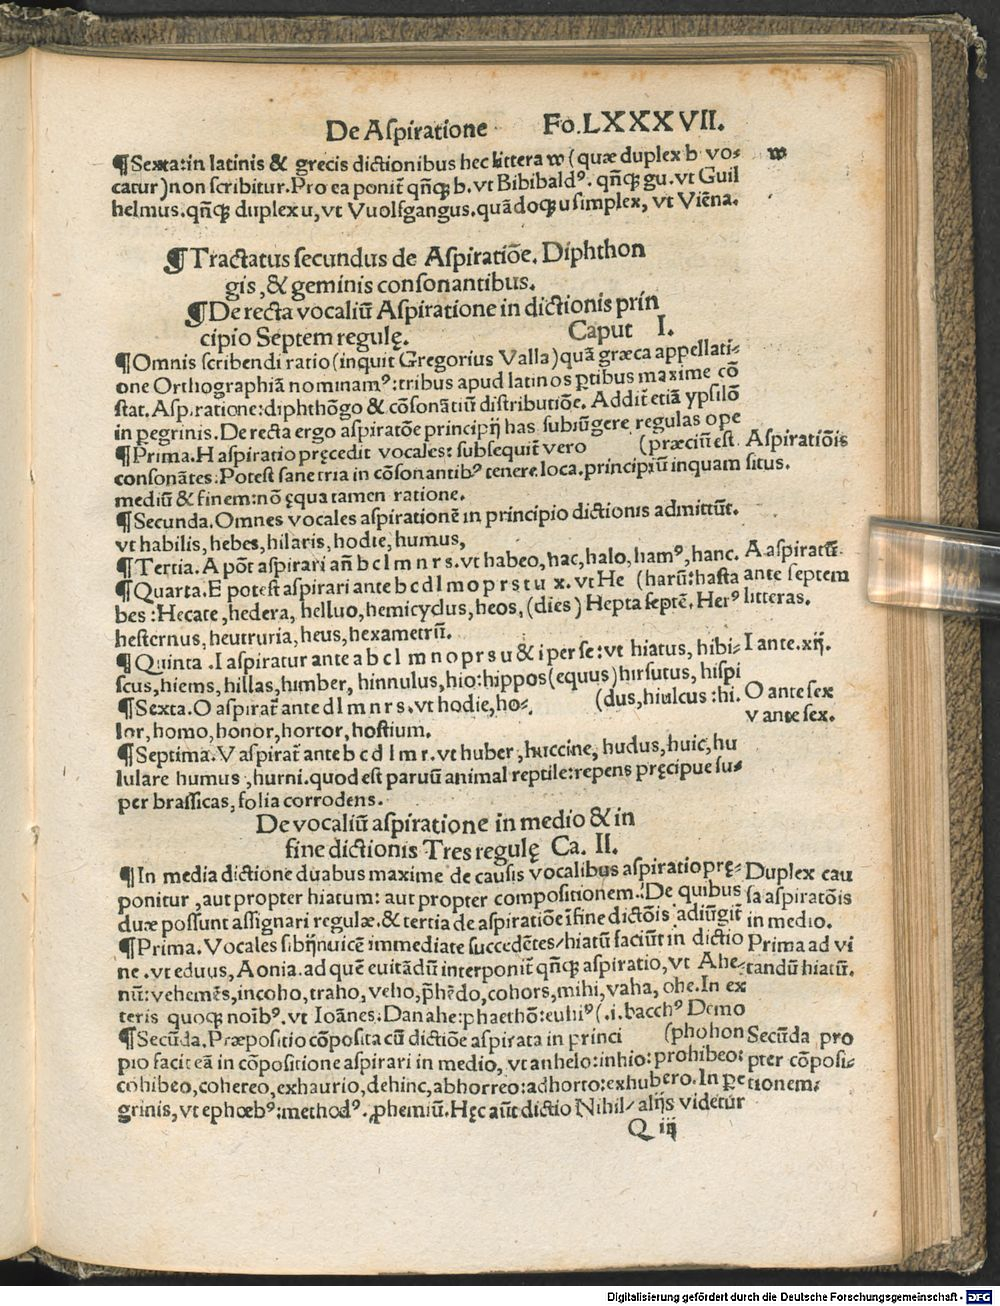 De Aſpiratione Fo.LXXXVII.
¶Sexta:in latinis & grecis dictionibus hec littera w (quæ duplex b vo⸗ w
catur)non ſcribitur.Pro ea ponit̃ qñq̃ b.vt Bibibaldꝰ. qñq̃ gu.vt Guil
helmus.qñq̃ duplex u, vt Vuolfgangus.quãdoq̃ u ſimplex, vt Viẽna.
¶Tractatus ſecundus de Aſpiratiõe. Diphthon
gis,& geminis conſonantibus.
¶De recta vocaliũ Aſpiratione in dictionis prin
cipio Septem regulę. Caput I.
¶Omnis ſcribendi ratio(inquit Gregorius Valla)quã græca appellati⸗
one Orthographiã nominamꝰ:tribus apud latinos ꝑtibus maxime cõ
ſtat.Aſpiratione:diphthõgo & cõſonãtiũ diſtributiõe. Addit̃ etiã ypſilõ
in ꝑegrinis.De recta ergo aſpiratõe principij has ſubiũgere regulas ope
¶Prima.H aſpiratio pręcedit vocales: ſubſequit̃ vero (præciũ eſt. Aſpiratiõis
conſonãtes:Poteſt ſane tria in cõſonantibꝰ tenere loca.principiũ inquam ſitus.
mediũ & finem:nõ ęqua tamen ratione.
¶Secunda.Omnes vocales aſpirationẽ in principio dictionis admittũt.
vt habilis,hebes,hilaris,hodie,humus,
¶Tertia.A põt aſpirari añ b c l m n r s.vt habeo,hac,halo,hamꝰ,hanc. A aſpiratũ
¶Quarta.E poteſt aſpirari ante b c d l m o p r s t u x. vt He (harũ:haſta ante ſeptem
bes :Hecate,hedera, helluo,hemicyclus,heos,(dies) Hepta ſeptẽ.Herꝰ litteras.
heſternus,heutruria,heus,hexametrũ.
¶Quinta .I aſpiratur ante a b c l m n o p r s u & i per ſe:vt hiatus, hibi⸗ I ante.xij.
ſcus,hiems,hillas,himber, hinnulus,hio:hippos(equus)hirſutus, hiſpi
¶Sexta.O aſpirat̃ ante d l m n r s.vt hodie,ho⸗ (dus,hiulcus :hi. O ante ſex
lor,homo,honor,hortor,hoſtium. V ante ſex.
¶Septima.V aſpirat̃ ante b c d l m r.vt huber,huccine, hudus,huic,hu
lulare humus ,hurni.quod eſt paruũ animal reptile:repens pręcipue ſu⸗
per braſſicas,folia corrodens.
De vocaliũ aſpiratione in medio & in
fine dictionis Tres regulę Ca. II.
¶In media dictione duabus maxime de cauſis vocalibus aſpiratio prę⸗ Duplex cau
ponitur ,aut propter hiatum: aut propter compoſitionem.:De quibus ſa aſpiratõis
duæ poſſunt aſſignari regulæ.& tertia de aſpiratiõe ĩ fine dictõis adiũgit̃ in medio.
¶Prima.Vocales ſibijnuicẽ immediate ſuccedẽtes/hiatũ faciũt in dictio Prima ad vi
ne .vt eduus, Aonia.ad quẽ euitãdũ interponit̃ qñq̃ aſpiratio,vt Ahe⸗ tandũ hiatũ.
nũ:vehemẽs,incoho,traho,veho,p̃hẽdo,cohors,mihi,vaha, ohe.In ex
teris quoq̃ noĩbꝰ.vt Ioãnes:Danahe:phaethõ:euhiꝰ(.i.bacchꝰ Demo
¶Secũda.Præpoſitio cõpoſita cũ dictiõe aſpirata in princi (phohon Secũda pro
pio facit eã in cõpoſitione aſpirari in medio, vt anhelo:inhio:prohibeo: pter cõpoſi⸗
cohibeo,cohereo,exhaurio,dehinc,abhorreo:adhorto:exhubero.In ꝑe tionem:
grinis,vt ephœbꝰ:methodꝰ.ꝓhemiũ.Hęc aũt dictio Nihil/ alijs videtur
Q iij
Digitalisierung gefördert durch die Deutsche Forschungsgemeinschaft - DFG